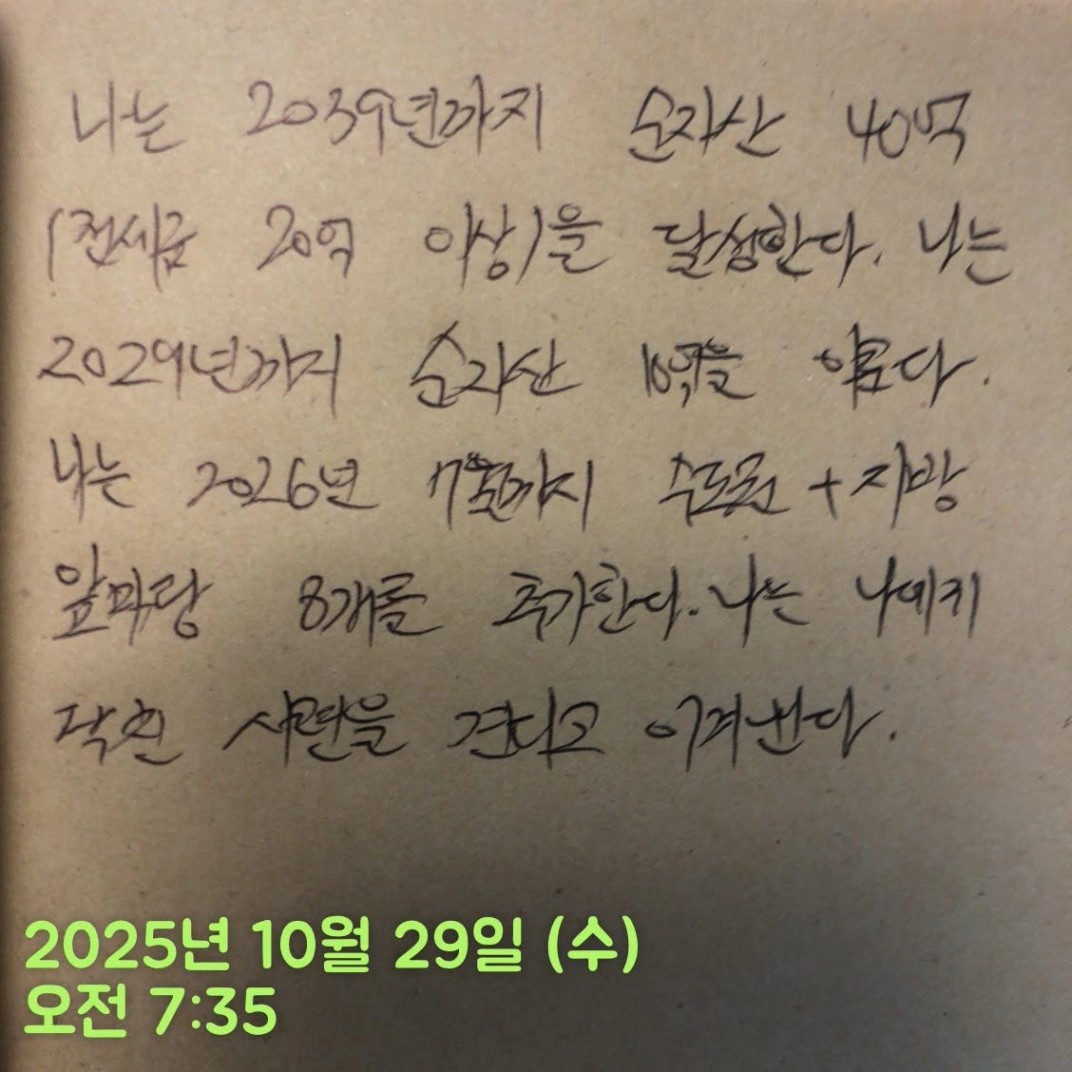 나는 2039년까지 순자산 40억
(전세금 20억 이상)을 달성한다. 나는
2029년까지 순자산 10억을
나는 2026년 7월까지 수도권 + 지방
앞마당 8개를 추가한다. 나는 나에게
닥친 시련을 견디고 이겨낸다.
2025년 10월 29일 (수)
오전 7:35